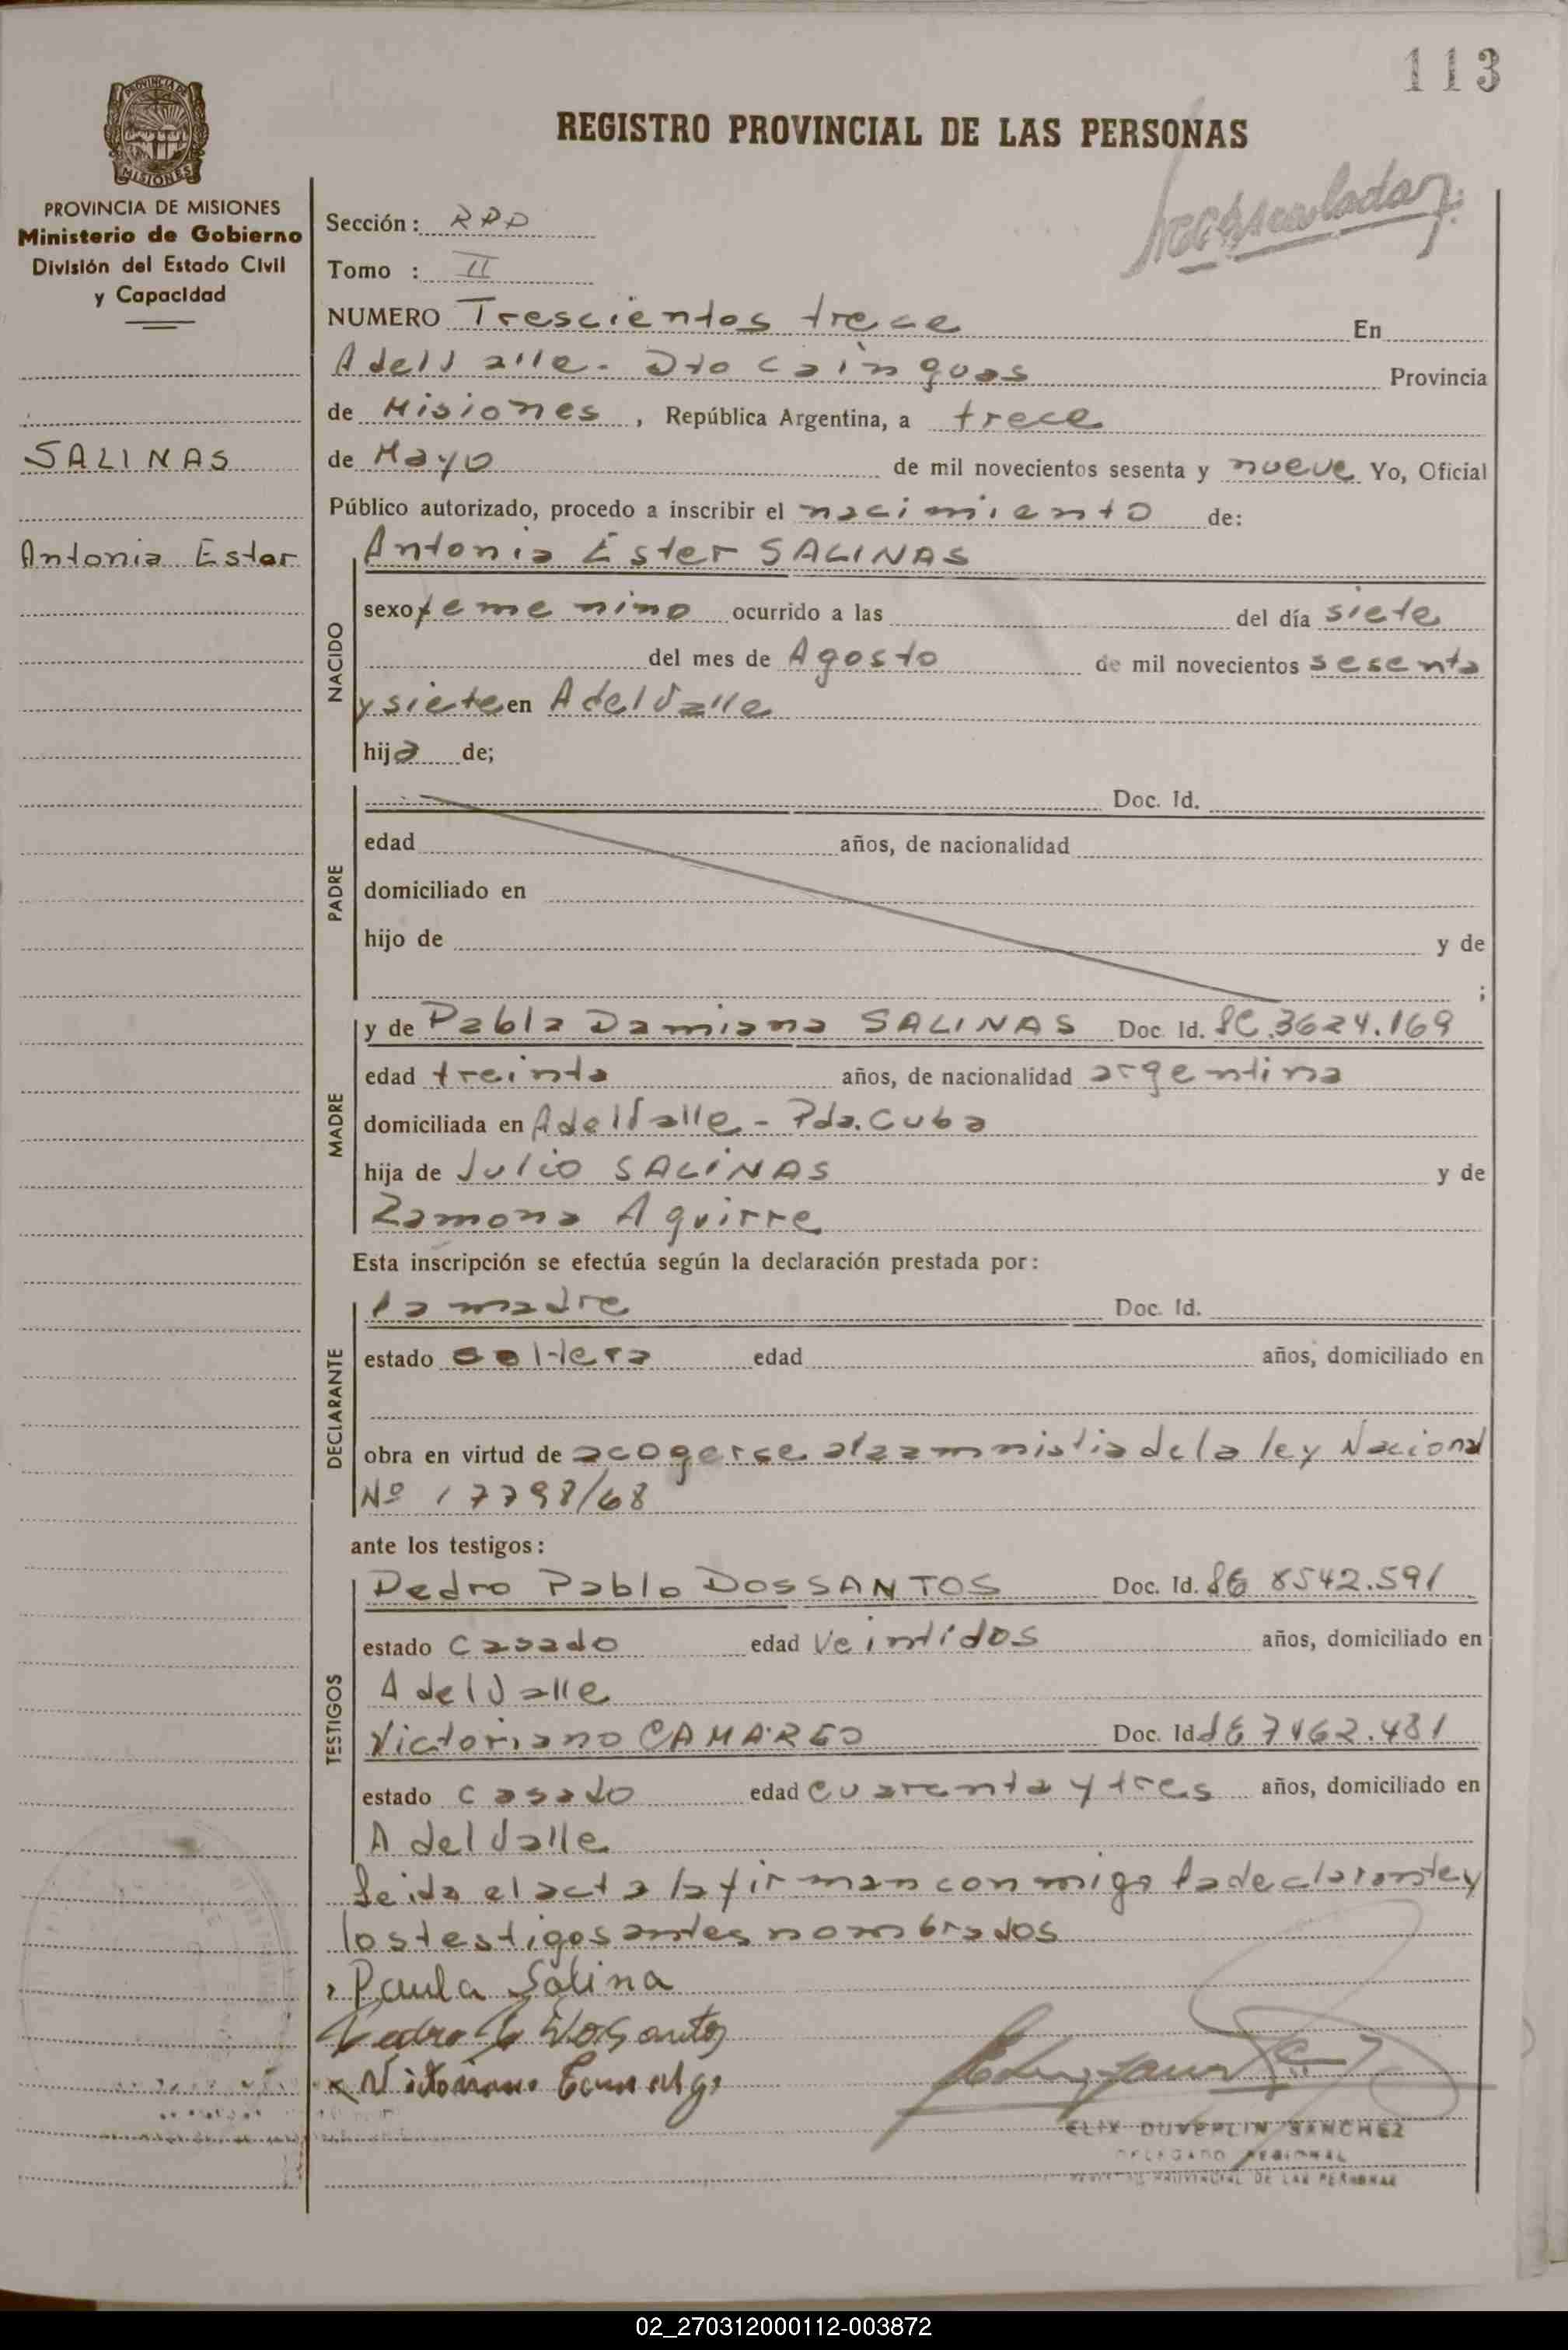 113
PROVINCIA DE
MISIONES
REGISTRO PROVINCIAL DE LAS PERSONAS
PROVINCIA DE MISIONES
Ministerio de Gobierno
División del Estado Civil
y Capacidad
SALINAS
Antonia Ester
Sección: RPP
Tomo : II
NUMERO Trescientos trece En
A del Valle - Dto Cainguas Provincia
de Misiones, República Argentina, a trece
de Mayo de mil novecientos sesenta y nueve Yo, Oficial
Público autorizado, procedo a inscribir el nacimiento de:
NACIDO
Antonia Ester SALINAS
sexo femenino ocurrido a las del día siete
del mes de Agosto de mil novecientos sesenta
y siete en A del Valle
hija de;
PADRE
Doc. Id.
edad años, de nacionalidad
domiciliado en
hijo de y de
;
MADRE
y de Pabla Damiana SALINAS Doc. Id. LC.3624.169
edad treinta años, de nacionalidad argentina
domiciliada en A del Valle - Pda. Cuba
hija de Julio SALINAS y de
Ramona Aguirre
Esta inscripción se efectúa según la declaración prestada por:
DECLARANTE
la madre Doc. Id.
estado soltera edad años, domiciliado en
obra en virtud de acogerse a la amnistia de la ley Nacional
Nº 17798/68
ante los testigos:
TESTIGOS
Pedro Pablo DOSSANTOS Doc. Id. LE 8542.591
estado casado edad veintidos años, domiciliado en
A del Valle
Victoriano CAMARGO Doc. Id. LE 7462.481
estado casado edad cuarenta y tres años, domiciliado en
A del Valle
Leida el acta la firman conmigo la declarante y
los testigos antes nombrados
Paula Salina
Pedro P Dosantos
x Victoriano
ELIX DUVERLIN SANCHEZ
DELEGADO REGIONAL
REGISTRO PROVINCIAL DE LAS PERSONAS
02_270312000112-003872